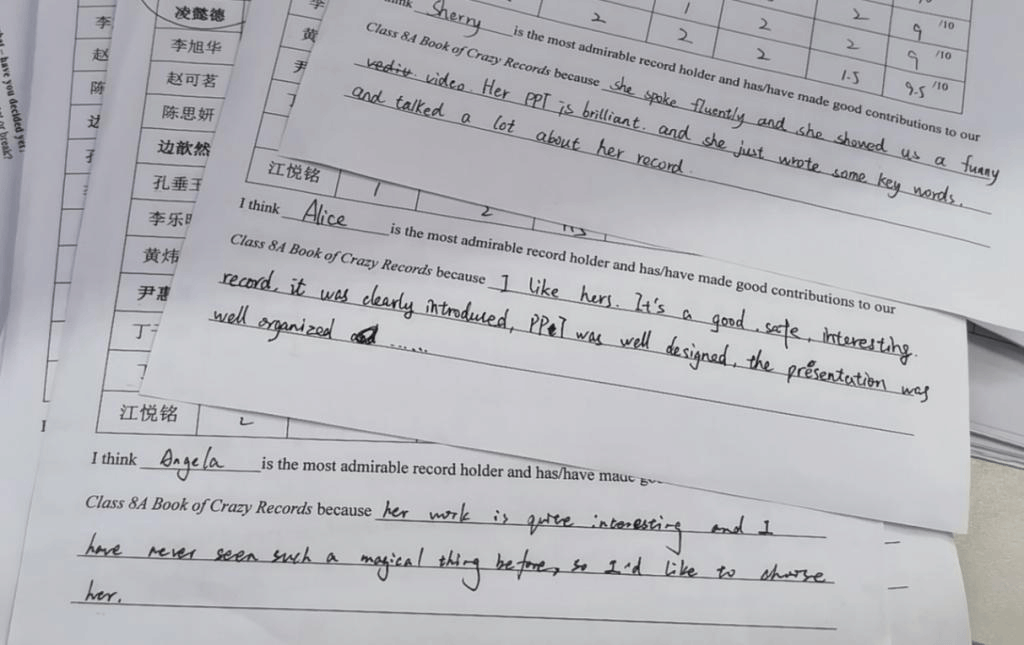 have you decided yet
or break?
李
赵
陈
边
凌懿德
李旭华
赵可茗
陈思妍
边歆然
孔垂
李乐
黄炜
尹惠
丁
江悦铭 2
李
黄
尹
2 1 2 2 /10
2 2 2 9 /10
2 1.5 9 /10
9.5 /10
Sherry is the most admirable record holder and has/have made good contributions to our
Class 8A Book of Crazy Records because she spoke fluently and she showed us a funny
video. Her PPT is brilliant. and she just wrote some key words.
and talked a lot about her record.
江悦铭 1 2 1.5
I think Alice is the most admirable record holder and has/have made good contributions to our
Class 8A Book of Crazy Records because I like hers. It's a good, safe, interesting.
record, it was clearly introduced, PPT was well designed, the presentation was
well organized ......
I think Angela is the most admirable record holder and has/have made
Class 8A Book of Crazy Records because her work is quite interesting and I
have never seen such a magical thing before, so I'd like to choose
her.